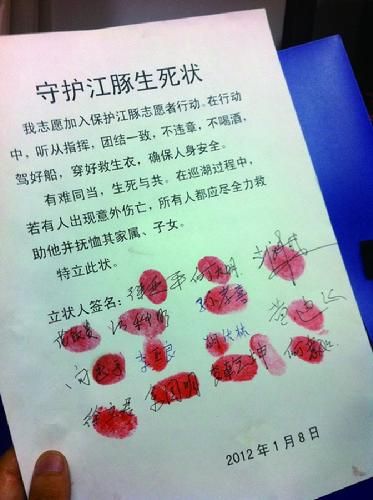 守护江豚生死状
我志愿加入保护江豚志愿者行动。在行动
中，听从指挥，团结一致，不违章，不喝酒，
驾好船，穿好救生衣，确保人身安全。
有难同当，生死与共。在巡湖过程中，
若有人出现意外伤亡，所有人都应尽全力救
助他并抚恤其家属、子女。
特立此状。
立状人签名：
2012年1月8日